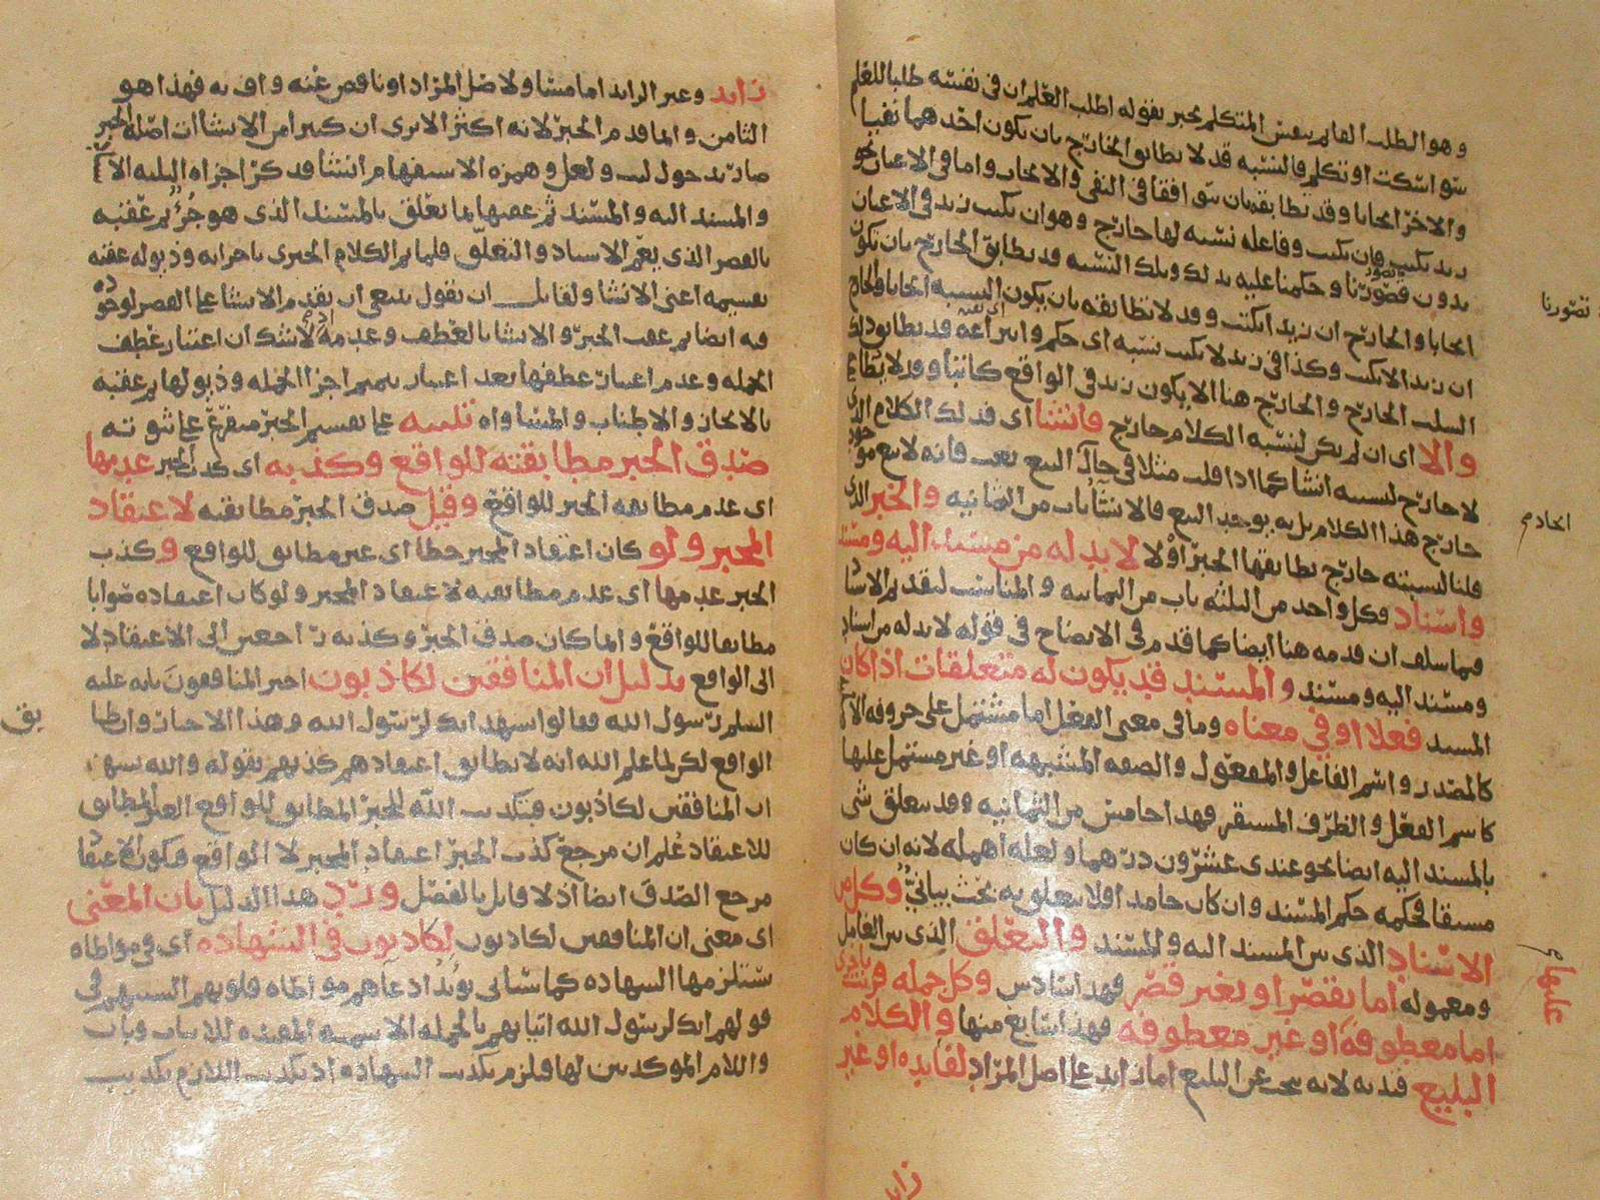 وهو الطلب القايم بنفس المتكلم يخبر بقوله اطلب العلم ان في نفسه طلبا للعلم
سوا سكت او تكلم فالنسبه قد لا يطابق الخارج بان يكون احدهما نفيا
والاخر ايجابا وقد تطابقه بان يتوافقا في النفي والايجاب واما في الاعيان نحو
زيد يكتب فان يكتب وفاعله نسبه لها خارج وهو ان يكتب زيد في الاعيان
بدون تصورنا وحكمنا عليه بذلك وتلك النسبه قد يطابق الخارج بان يكون
ايجابا والخارج ان زيدا يكتب وقد لا تطابقه بان يكون النسبه ايجابا والخارج
ان زيدا لا يكتب وكذا في زيد لا يكتب نسبه اي حكم وانتزاعه قد يطابق ذلك
السلب الخارج والخارج هنا الا يكون زيد في الواقع كاتبا وقد لا يطابق
والا اي ان لم يكن لنسبه الكلام خارج فانشا اي فذلك الكلام الذي
لا خارج لنسبته انشا كما اذا قلت مثلا في حال البيع بعت فانه لا بيع موجود
خارج هذا الكلام بل به يوجد البيع فالانشا باب من الثمانيه والخبر الذي
قلنا لنسبته خارج تطابقها الخبر اولا لا بد له من مسند اليه ومسند
واسناد وكل واحد من الثلثه باب من الثمانيه والمناسب لتقديم الانشا
فيما سلف ان قدمه هنا ايضا كما قدم في الايضاح في قوله لا بد له من اسناد
ومسند اليه ومسند والمسند قد يكون له متعلقات اذا كان
المسند فعلا او في معناه وما في معنى الفعل اما مشتمل على حروفه
كالمصدر واسم الفاعل والمفعول والصفه المشبهه او غير مشتمل عليها
كاسم الفعل والظرف المستقر فهذا خامس من الثمانيه وقد يتعلق شي
بالمسند اليه ايضا نحو عندي عشرون درهما ولعله اهمله لانه ان كان
مشتقا فحكمه حكم المسند وان كان جامدا فلا يتعلق به بحث بياني وكل من
الاسناد الذي بين المسند اليه والمسند والتعلق الذي بين العامل
ومعموله اما بقصر او بغير قصر فهذا سادس وكل جمله قرنت باخرى
اما معطوفه او غير معطوفه فهذا سابع منها والكلام
البليغ قيد به لانه بحث عن البليغ اما زايد على اصل المراد لفايده او غير
زايد
تصورنا
عليها
زايد وغير الزايد اما مساو لاصل المراد او ناقص عنه واف به فهذا هو
الثامن وانما قدم الخبر لانه اكثر الا ترى ان كثيرا من الانشاات اصله الخبر
صار بدخول ليت ولعل وهمزه الاستفهام انشا قد ذكر اجزاه الثلثه الاسناد
والمسند اليه والمسند ثم عقبها بما تعلق بالمسند الذي هو جزء ثم عقبه
بالقصر الذي يعم الاسناد والتعلق فلما تم الكلام الخبري باجزايه وذيوله عقبه
بقسيمه اعني الانشا ولقايل ان يقول ينبغي ان يقدم الانشا على القصر لوجوده
فيه ايضا ثم عقب الخبر والانشا بالعطف وعدمه اذ لا شك ان اعتبار عطف
الجمله وعدم اعتبار عطفها بعد اعتبار تتميم اجزا الجمله وذيولها ثم عقبه
بالايجاز والاطناب والمساواه تنبيه على تقسيم الخبر متفرع على ثبوته
صدق الخبر مطابقته للواقع وكذبه اي كذب الخبر عدمها
اي عدم مطابقه الخبر للواقع وقيل صدق الخبر مطابقته لاعتقاد
المخبر ولو كان اعتقاد المخبر خطا اي غير مطابق للواقع وكذب
الخبر عدمها اي عدم مطابقته لاعتقاد المخبر ولو كان اعتقاده صوابا
مطابقا للواقع وانما كان صدق الخبر وكذبه راجعين الى الاعتقاد لا
الى الواقع بدليل ان المنافقين لكاذبون اخبر المنافقون بانه عليه
السلم رسول الله فقالوا نشهد انك لرسول الله وهذا الاخبار وان طابق
الواقع لكن لما علم الله انه لا يطابق اعتقادهم كذبهم بقوله والله يشهد
ان المنافقين لكاذبون فبتكذيب الله للخبر المطابق للواقع الغير المطابق
للاعتقاد علم ان مرجع كذب الخبر اعتقاد المخبر لا الواقع فيكون الاعتقاد
مرجع الصدق ايضا اذ لا قايل بالفصل ورد هذا الدليل بان المعنى
اي معنى ان المنافقين لكاذبون لكاذبون في الشهاده اي في مواطاه
تستلزمها الشهاده كما سياتي يوئد ادعاهم مواطاه قلوبهم السنتهم في
قولهم انك لرسول الله اتيانهم بالجمله الاسميه المفيده للثبات وبان
واللام الموكدتين لها فيلزم تكذيب الشهاده اذ تكذيب اللازم تكذيب
بق